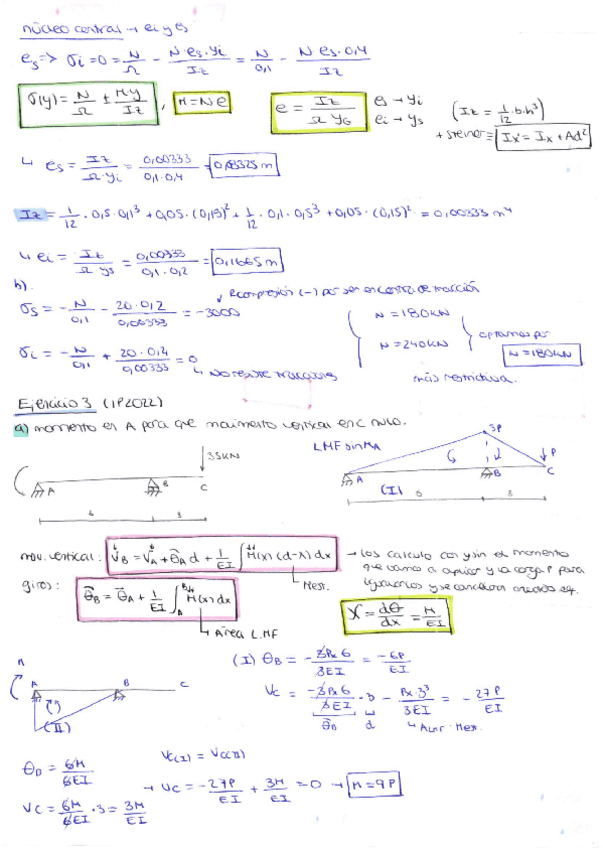 núcleo central → ei y es
es => σi = 0 = N/Ω - N·es·yi/Iz = N/0,1 - N es·0,4/Iz
σ(y) = N/Ω ± M·y/Iz , M = N e
e = Iz/Ω yG
es → yi
ei → ys
(Iz = 1/12·b·h³)
+ steiner = Ix' = Ix + Ad²
↳ es = Iz/Ω·yi = 0,00333/0,1·0,4 = 0,08325 m
Iz = 1/12 · 0,5·0,1³ + 0,05·(0,15)² + 1/12·0,1·0,5³ + 0,05·(0,15)² = 0,00333 m⁴
↳ ei = Iz/Ω ys = 0,00333/0,1·0,2 = 0,1665 m
b).
σs = -N/0,1 - 20·0,2/0,00333 = -3000
compresión (-) por ser en contra de tracción
σi = -N/0,1 + 20·0,4/0,00333 = 0
↳ No resiste tracciones
N = 180KN
N = 240KN
optamos por
N = 180KN
más restrictiva.
Ejercicio 3 (1P2022)
a) momento en A para que movimiento vertical en C nulo.
35KN
A
B
C
6
3
LMF sin MA
3P
P
A
B
C
(I)
6
3
mov. vertical: VB = VA + θA d + 1/EI ∫ M(x) (d-x) dx
Mest.
→ los calculo con y sin el momento
que vamos a aplicar y la carga P para
giros: θB = θA + 1/EI ∫ M(x) dx
Área LMF
χ = dθ/dx = M/EI
(I) θB = -3P·6/3EI = -6P/EI
VC = -3P·6/3EI · 3 - P·3³/3EI = -27P/EI
θB
d
A
B
C
(II)
θB = 6M/6EI
VC(I) = VC(II)
→ VC = -27P/EI + 3M/EI = 0 → M = 9P
VC = 6M/6EI · 3 = 3M/EI